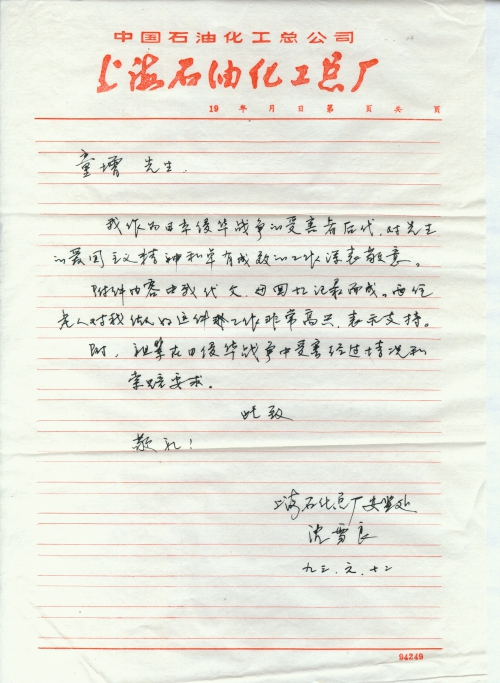 中国石油化工总公司
上海石油化工总厂
19 年 月 日 第 页 共 页
童增 先生.
我作为日本侵华战争的受害者后代, 对先生
的爱国主义精神和卓有成效的工作深表敬意。
附件内容由我代父、母回忆记录而成。两位
老人对我做的这件工作非常高兴, 表示支持。
附, 祖辈在日侵华战争中受害经过情况和
索赔要求。
此致
敬礼!
上海石化总厂安监处
沈雪良
九三.元.十二
94249